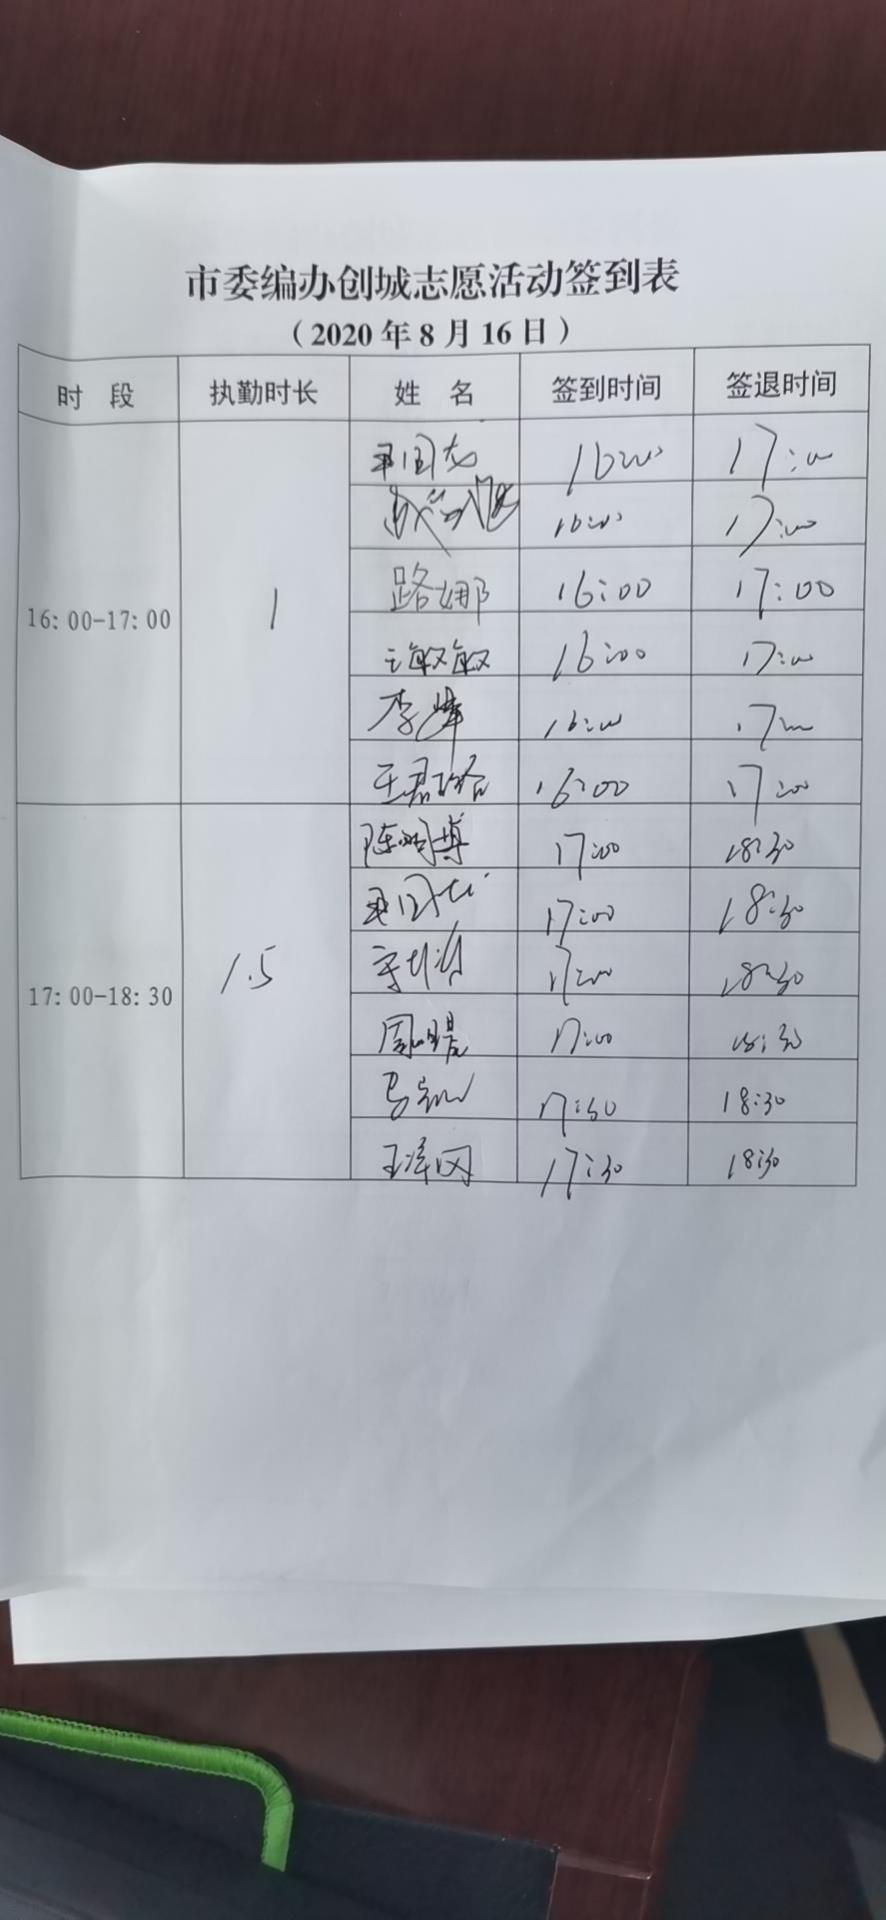 市委编办创城志愿活动签到表
（2020 年 8 月 16 日）
时 段 执勤时长 姓 名 签到时间 签退时间
16:00-17:00 1
16:00 17:00
16:00 17:00
路娜 16:00 17:00
敏敏 16:00 17:00
李 16:00 17:00
王君 16:00 17:00
17:00-18:30 1.5
陈明博 17:00 18:30
17:00 18:30
17:00 18:30
周 17:00 18:30
马 17:30 18:30
王泽 17:30 18:30